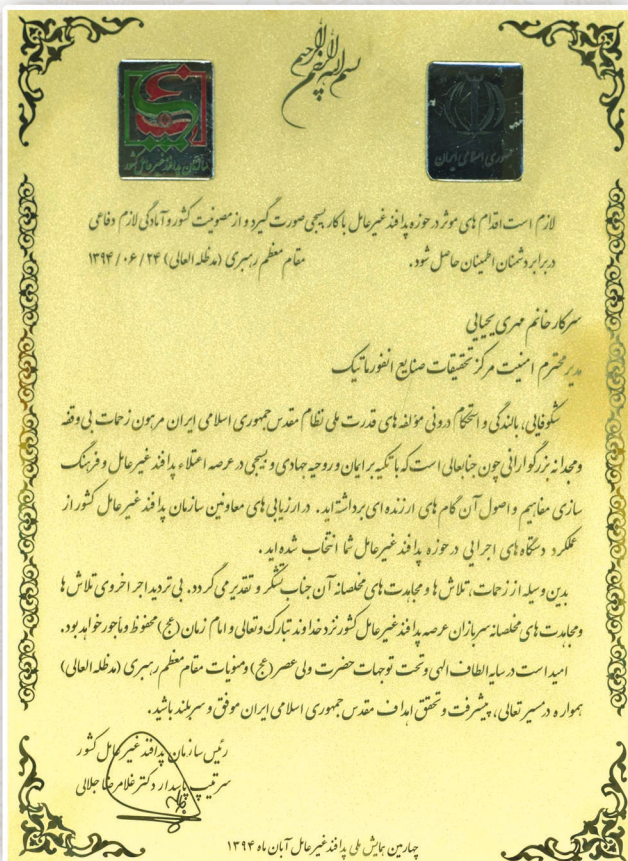 بسم الله الرحمن الرحیم
جمهوری اسلامی ایران
سازمان پدافند غیرعامل کشور
لازم است اقدام های موثر در حوزه پدافند غیرعامل با کار بسیجی صورت گیرد و از مصونیت کشور و آمادگی لازم دفاعی
در برابر دشمنان اطمینان حاصل شود. مقام معظم رهبری (مدظله العالی) ۱۳۹۴/۰۶/۲۴
سرکار خانم مهری یحیایی
مدیر محترم امنیت مرکز تحقیقات صنایع انفورماتیک
شکوفایی، بالندگی و استحکام درونی مؤلفه های قدرت ملی نظام مقدس جمهوری اسلامی ایران مرهون زحمات بی وقفه
و مجدانه بزرگوارانی چون جنابعالی است که با تکیه بر ایمان و روحیه جهادی و بسیجی در عرصه اعتلاء پدافند غیرعامل و فرهنگ
سازی مفاهیم و اصول آن گام های ارزنده ای برداشته اید. در ارزیابی های معاونین سازمان پدافند غیرعامل کشور از
عملکرد دستگاه های اجرایی در حوزه پدافند غیرعامل شما انتخاب شده اید.
بدین وسیله از زحمات، تلاش ها و مجاهدت های مخلصانه آن جناب تشکر و تقدیر می گردد. بی تردید اجر اخروی تلاش ها
و مجاهدت های مخلصانه سربازان عرصه پدافند غیرعامل کشور نزد خداوند تبارک وتعالی و امام زمان (عج) محفوظ و مأجور خواهد بود.
امید است در سایه الطاف الهی و تحت توجهات حضرت ولی عصر (عج) و منویات مقام معظم رهبری (مدظله العالی)
همواره در مسیر تعالی، پیشرفت و تحقق اهداف مقدس جمهوری اسلامی ایران موفق و سربلند باشید.
رئیس سازمان پدافند غیرعامل کشور
سرتیپ پاسدار دکتر غلامرضا جلالی
چهارمین همایش ملی پدافند غیرعامل آبان ماه ۱۳۹۴